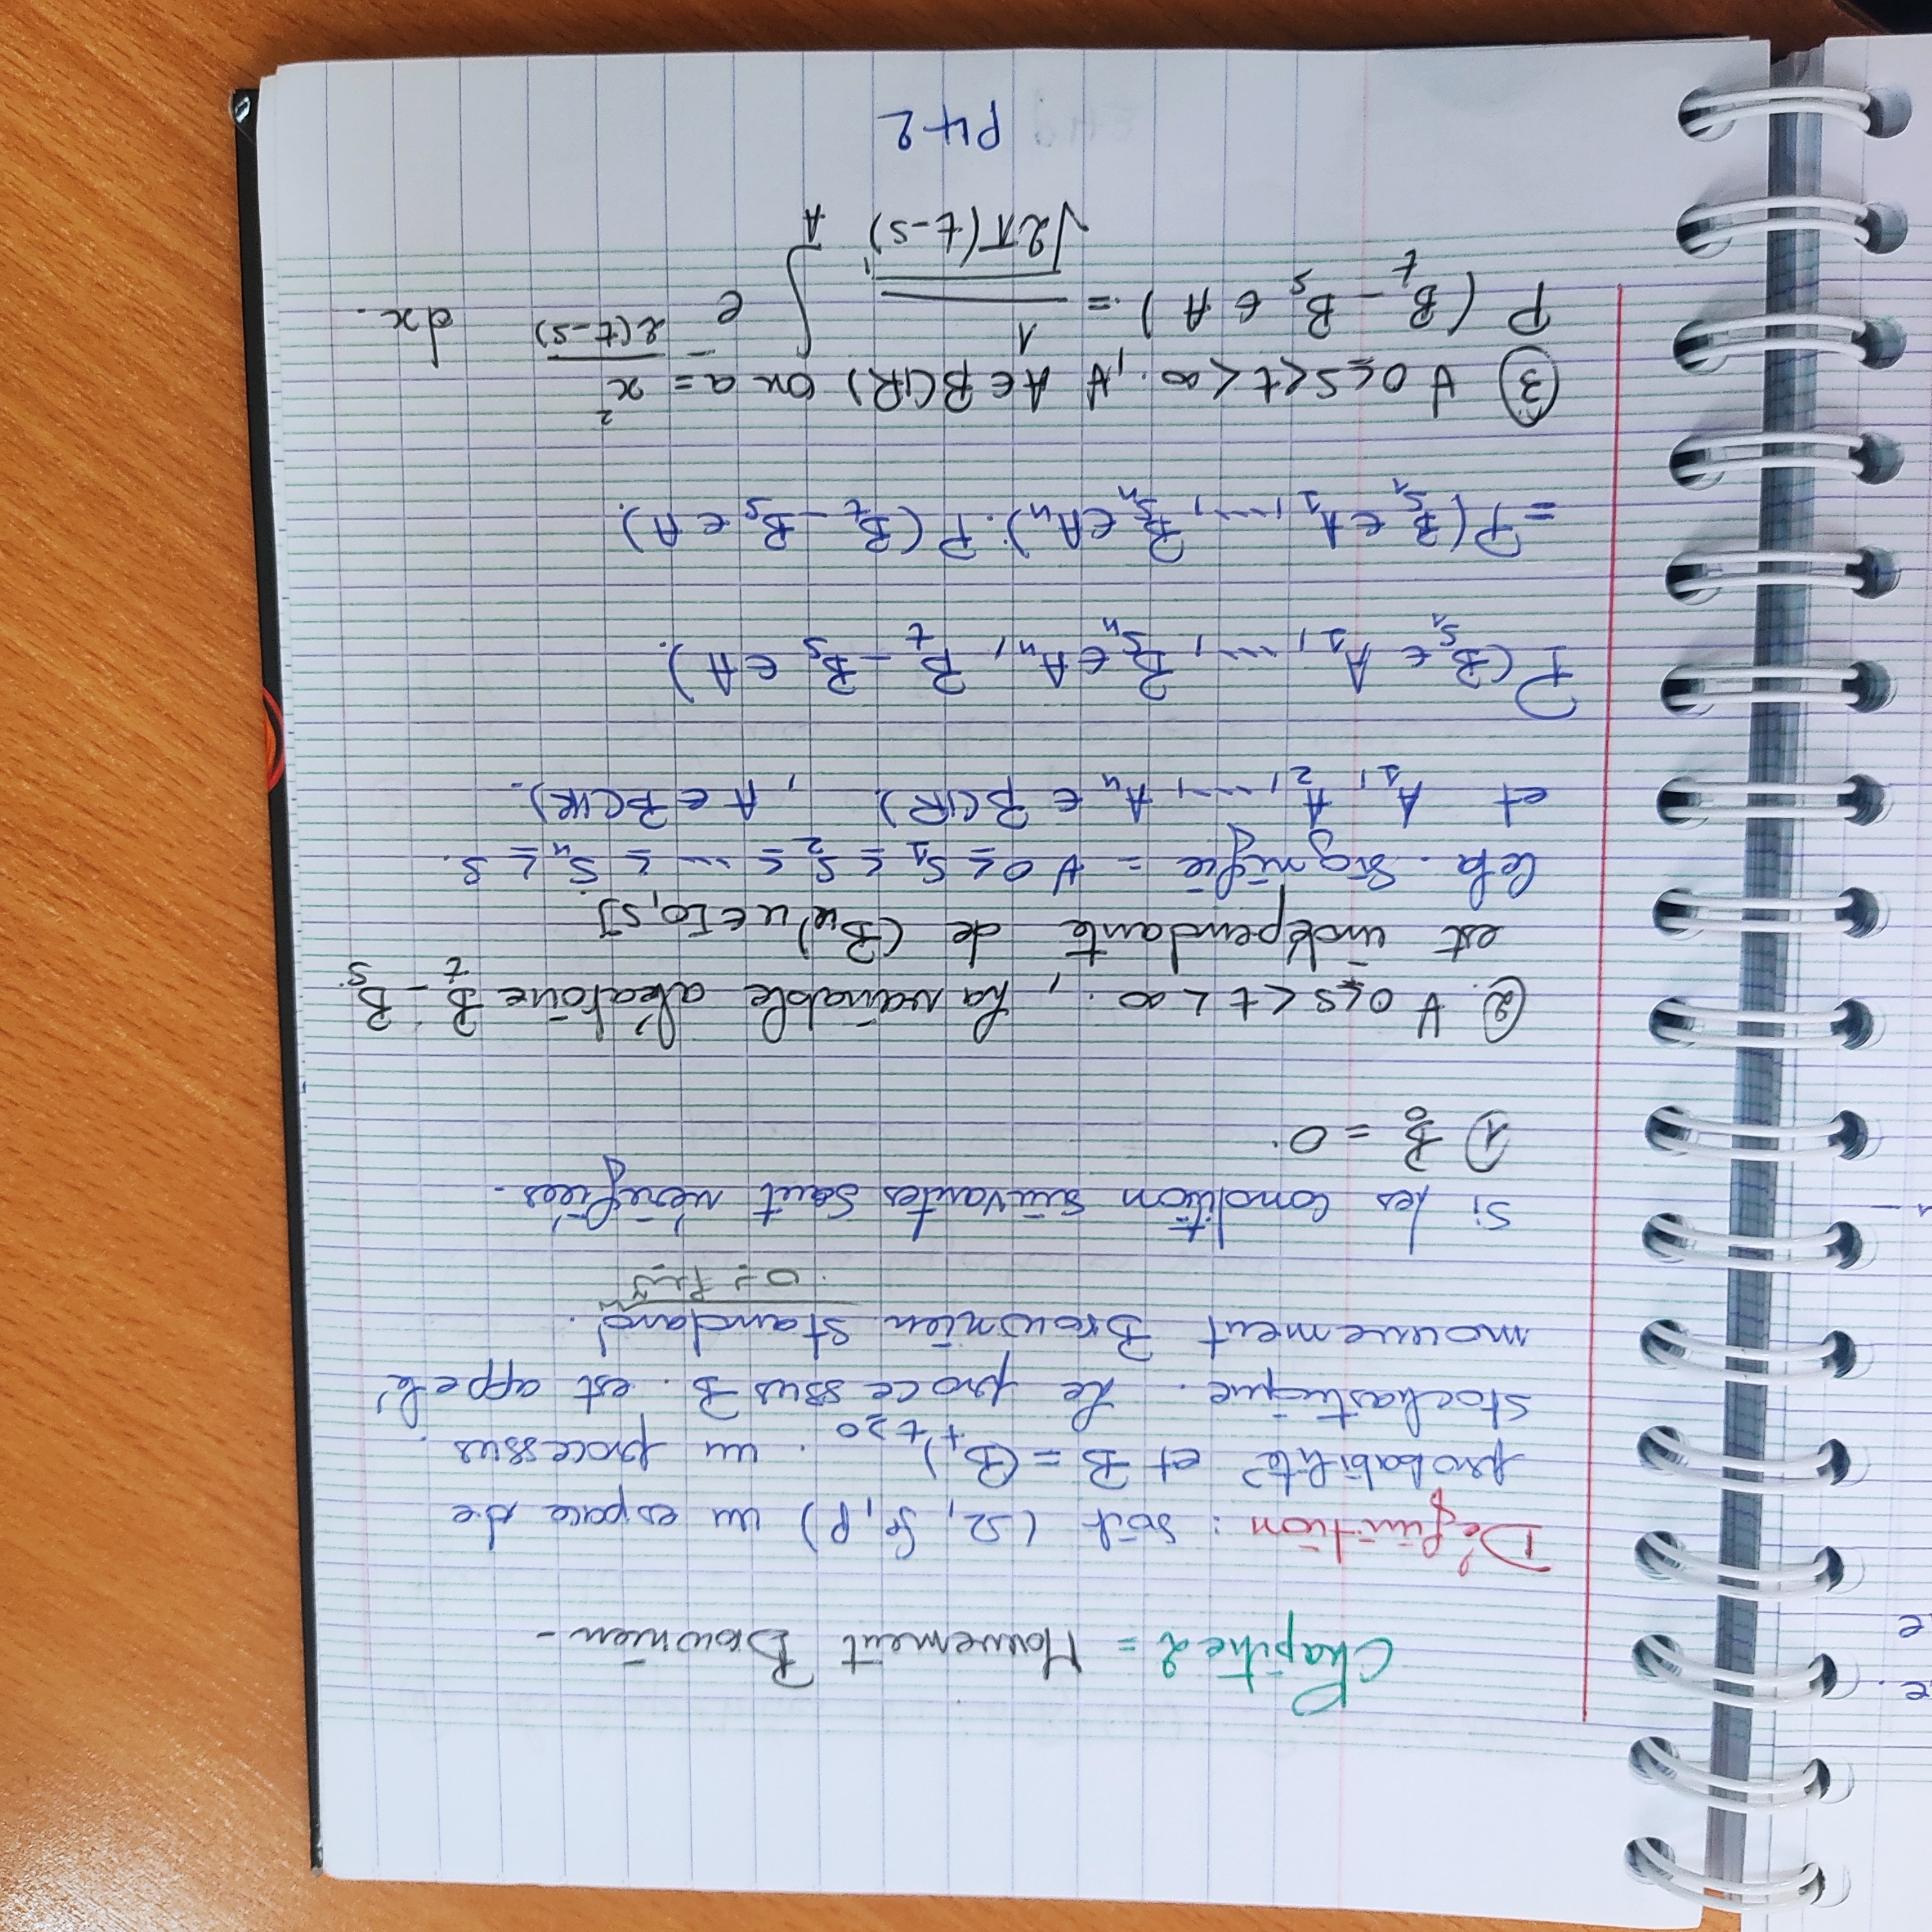 e.
e
Chapitre 2 = Mouvement Brownien -
Définition : soit (Ω, , P) un espace de
probabilité et B = (B_t)_{t≥0} . un processus
stochastique. Le processus B. est appelé
mouvement Brownien standard.
تبدأ بـ 0
Si les condition suivantes sont vérifiées -
1) B_0 = 0.
② ∀ 0≤s<t<∞ , La variable aléatoire B_t - B_s
est indépendante de (B_u)_{u∈[0,s]}.
Cela signifie = ∀ 0 ≤ s_1 ≤ s_2 ≤ ... ≤ s_n ≤ s.
et A_1, A_2, ..., A_n ∈ B(IR) , A ∈ B(IR).
P(B_{s_1} ∈ A_1, ..., B_{s_n} ∈ A_n, B_t - B_s ∈ A).
= P(B_{s_1} ∈ A_1, ..., B_{s_n} ∈ A_n). P(B_t - B_s ∈ A).
③ ∀ 0≤s<t<∞., ∀ A ∈ B(IR) on a =
P (B_t - B_s ∈ A) = 1/√(2π(t-s)) ∫_A e^{- x²/(2(t-s))} dx.
P42